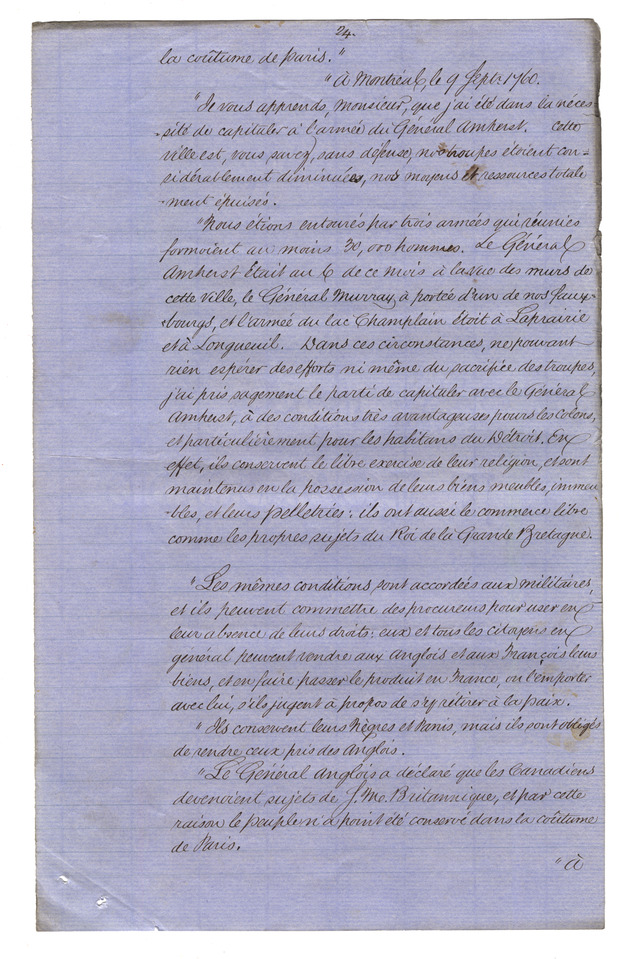 24.
la coûtume de Paris."
"À Montréal, le 9 Sept: 1760.
"Je vous apprends, Monsieur, que j'ai été dans la néces-
-sité de capituler à l'armée du Général Amherst. Cette
ville est, vous savez, sans défense, nos troupes étoient con-
sidérablement diminuées, nos moyens et ressources totale
-ment épuisés.
"Nous étions entourés par trois armées qui réunies
formoient au moins 30,000 hommes. Le Général
Amherst Était au 6 de ce mois à la vue des murs de
cette ville, le Général Murray à portée d'un de nos faux-
-bourgs, et l'armée du lac Champlain étoit à Laprairie
et à Longueuil. Dans ces circonstances, ne pouvant
rien espérer des efforts ni même du sacrifice des troupes,
j'ai pris sagement le parti de capituler avec le Général
Amherst, à des conditions très avantageuses pour les colons,
et particulièrement pour les habitans du Détroit. En
effet, ils conservent le libre exercise de leur religion, et sont
maintenus en la possession de leurs biens meubles, immeu-
-bles, et leurs pelletries: ils ont aussi le commerce libre
comme les propres sujets du Roi de la Grande Bretagne.
"Les mêmes conditions sont accordées aux militaires,
et ils peuvent commettre des procureurs pour user en
leur absence de leurs droits: eux et tous les citoyens en
général peuvent vendre aux Anglois et aux François leurs
biens, et en faire passer le produit en France, ou l'emporter
avec lui, s'ils jugent à propos de s'y rétirer à la paix.
"Ils conservent leurs Nègres et Panis, mais ils sont obligés
de rendre ceux pris des Anglois.
"Le Général Anglois a déclaré que les Canadiens
devenoient sujets de S. Me. Britannique, et par cette
raison le peuple n'a point été conservé dans la coûtume
de Paris.
"à